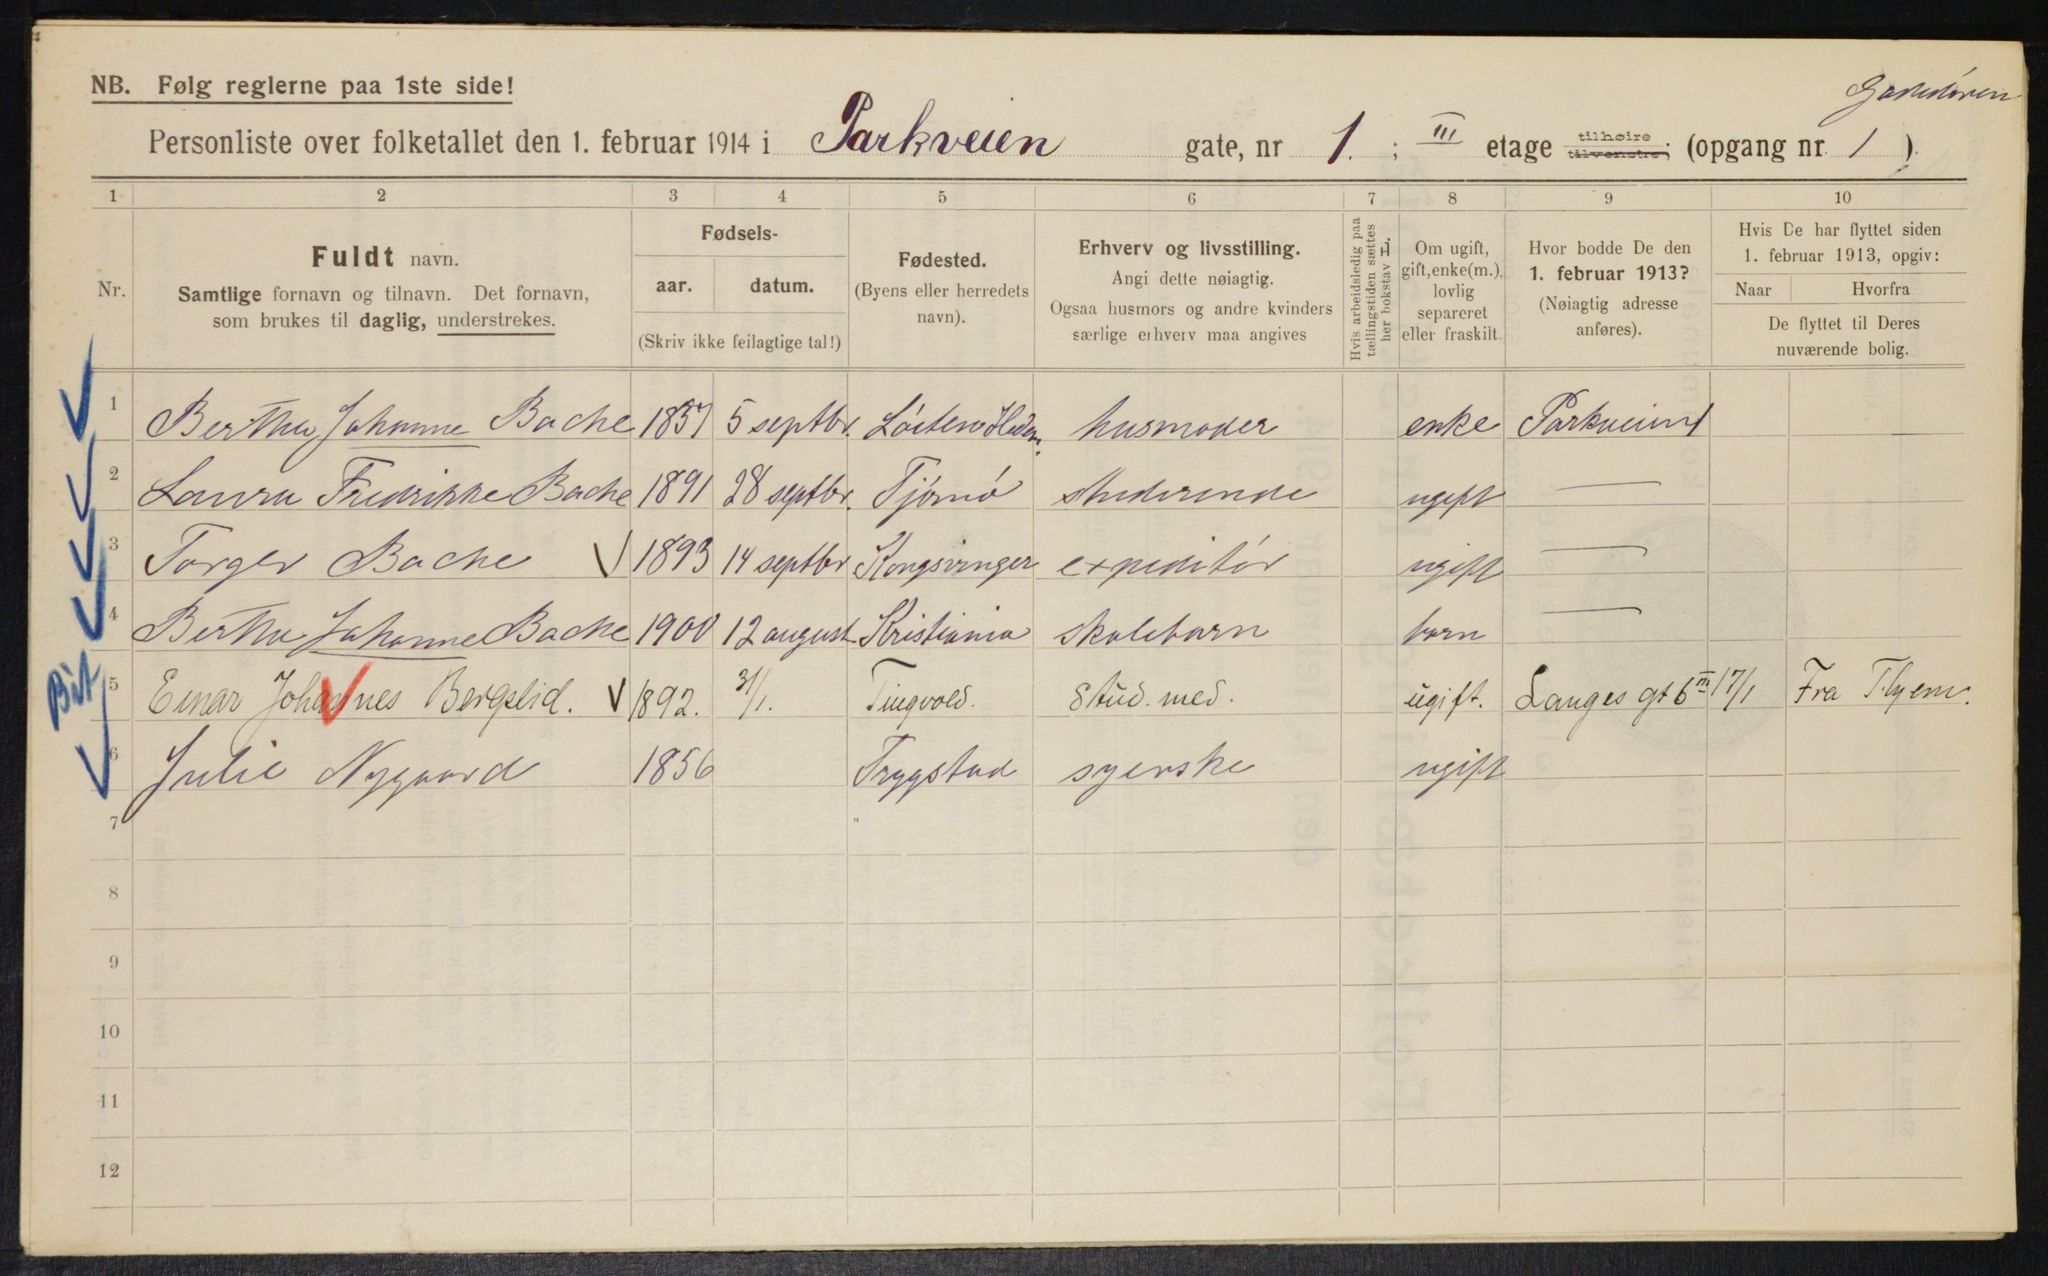 NB. Følg reglerne paa 1ste side!
Personliste over folketallet den 1. februar 1914 i Parkveien gate, nr 1. ; III etage tilhøire tilvenstre; (opgang nr. 1 ).
1 2 3 4 5 6 7 8 9 10
Nr.
Fuldt navn.
Samtlige fornavn og tilnavn. Det fornavn,
som brukes til daglig, understrekes.
Fødsels-
aar. datum.
(Skriv ikke feilagtige tal!)
Fødested.
(Byens eller herredets
navn).
Erhverv og livsstilling.
Angi dette nøiagtig.
Ogsaa husmors og andre kvinders
særlige erhverv maa angives
Hvis arbeidsledig paa
tællingstiden sættes
her bokstav L.
Om ugift,
gift, enke(m.),
lovlig
separeret
eller fraskilt.
Hvor bodde De den
1. februar 1913?
(Nøiagtig adresse
anføres).
Hvis De har flyttet siden
1. februar 1913, opgiv:
Naar Hvorfra
De flyttet til Deres
nuværende bolig.
1 Bertha Johanne Bache 1857 5 septbr. Løiten husmoder enke Parkveien 1
2 Laura Fredrikke Bache 1891 28 septbr. Tjømø studerende ugift —
3 Torger Bache 1893 14 septbr Kongsvinger expeditør ugift —
4 Bertha Johanne Bache 1900 12 august Kristiania skolebarn barn —
5 Einar Johannes Bergslid. 1892. 31/1. Tingvold. Stud. med. ugift. Langes gt 6 III 17/1 Fra
6 Julie Nygaard 1856 Trygstad syerske ugift
7
8
9
10
11
12